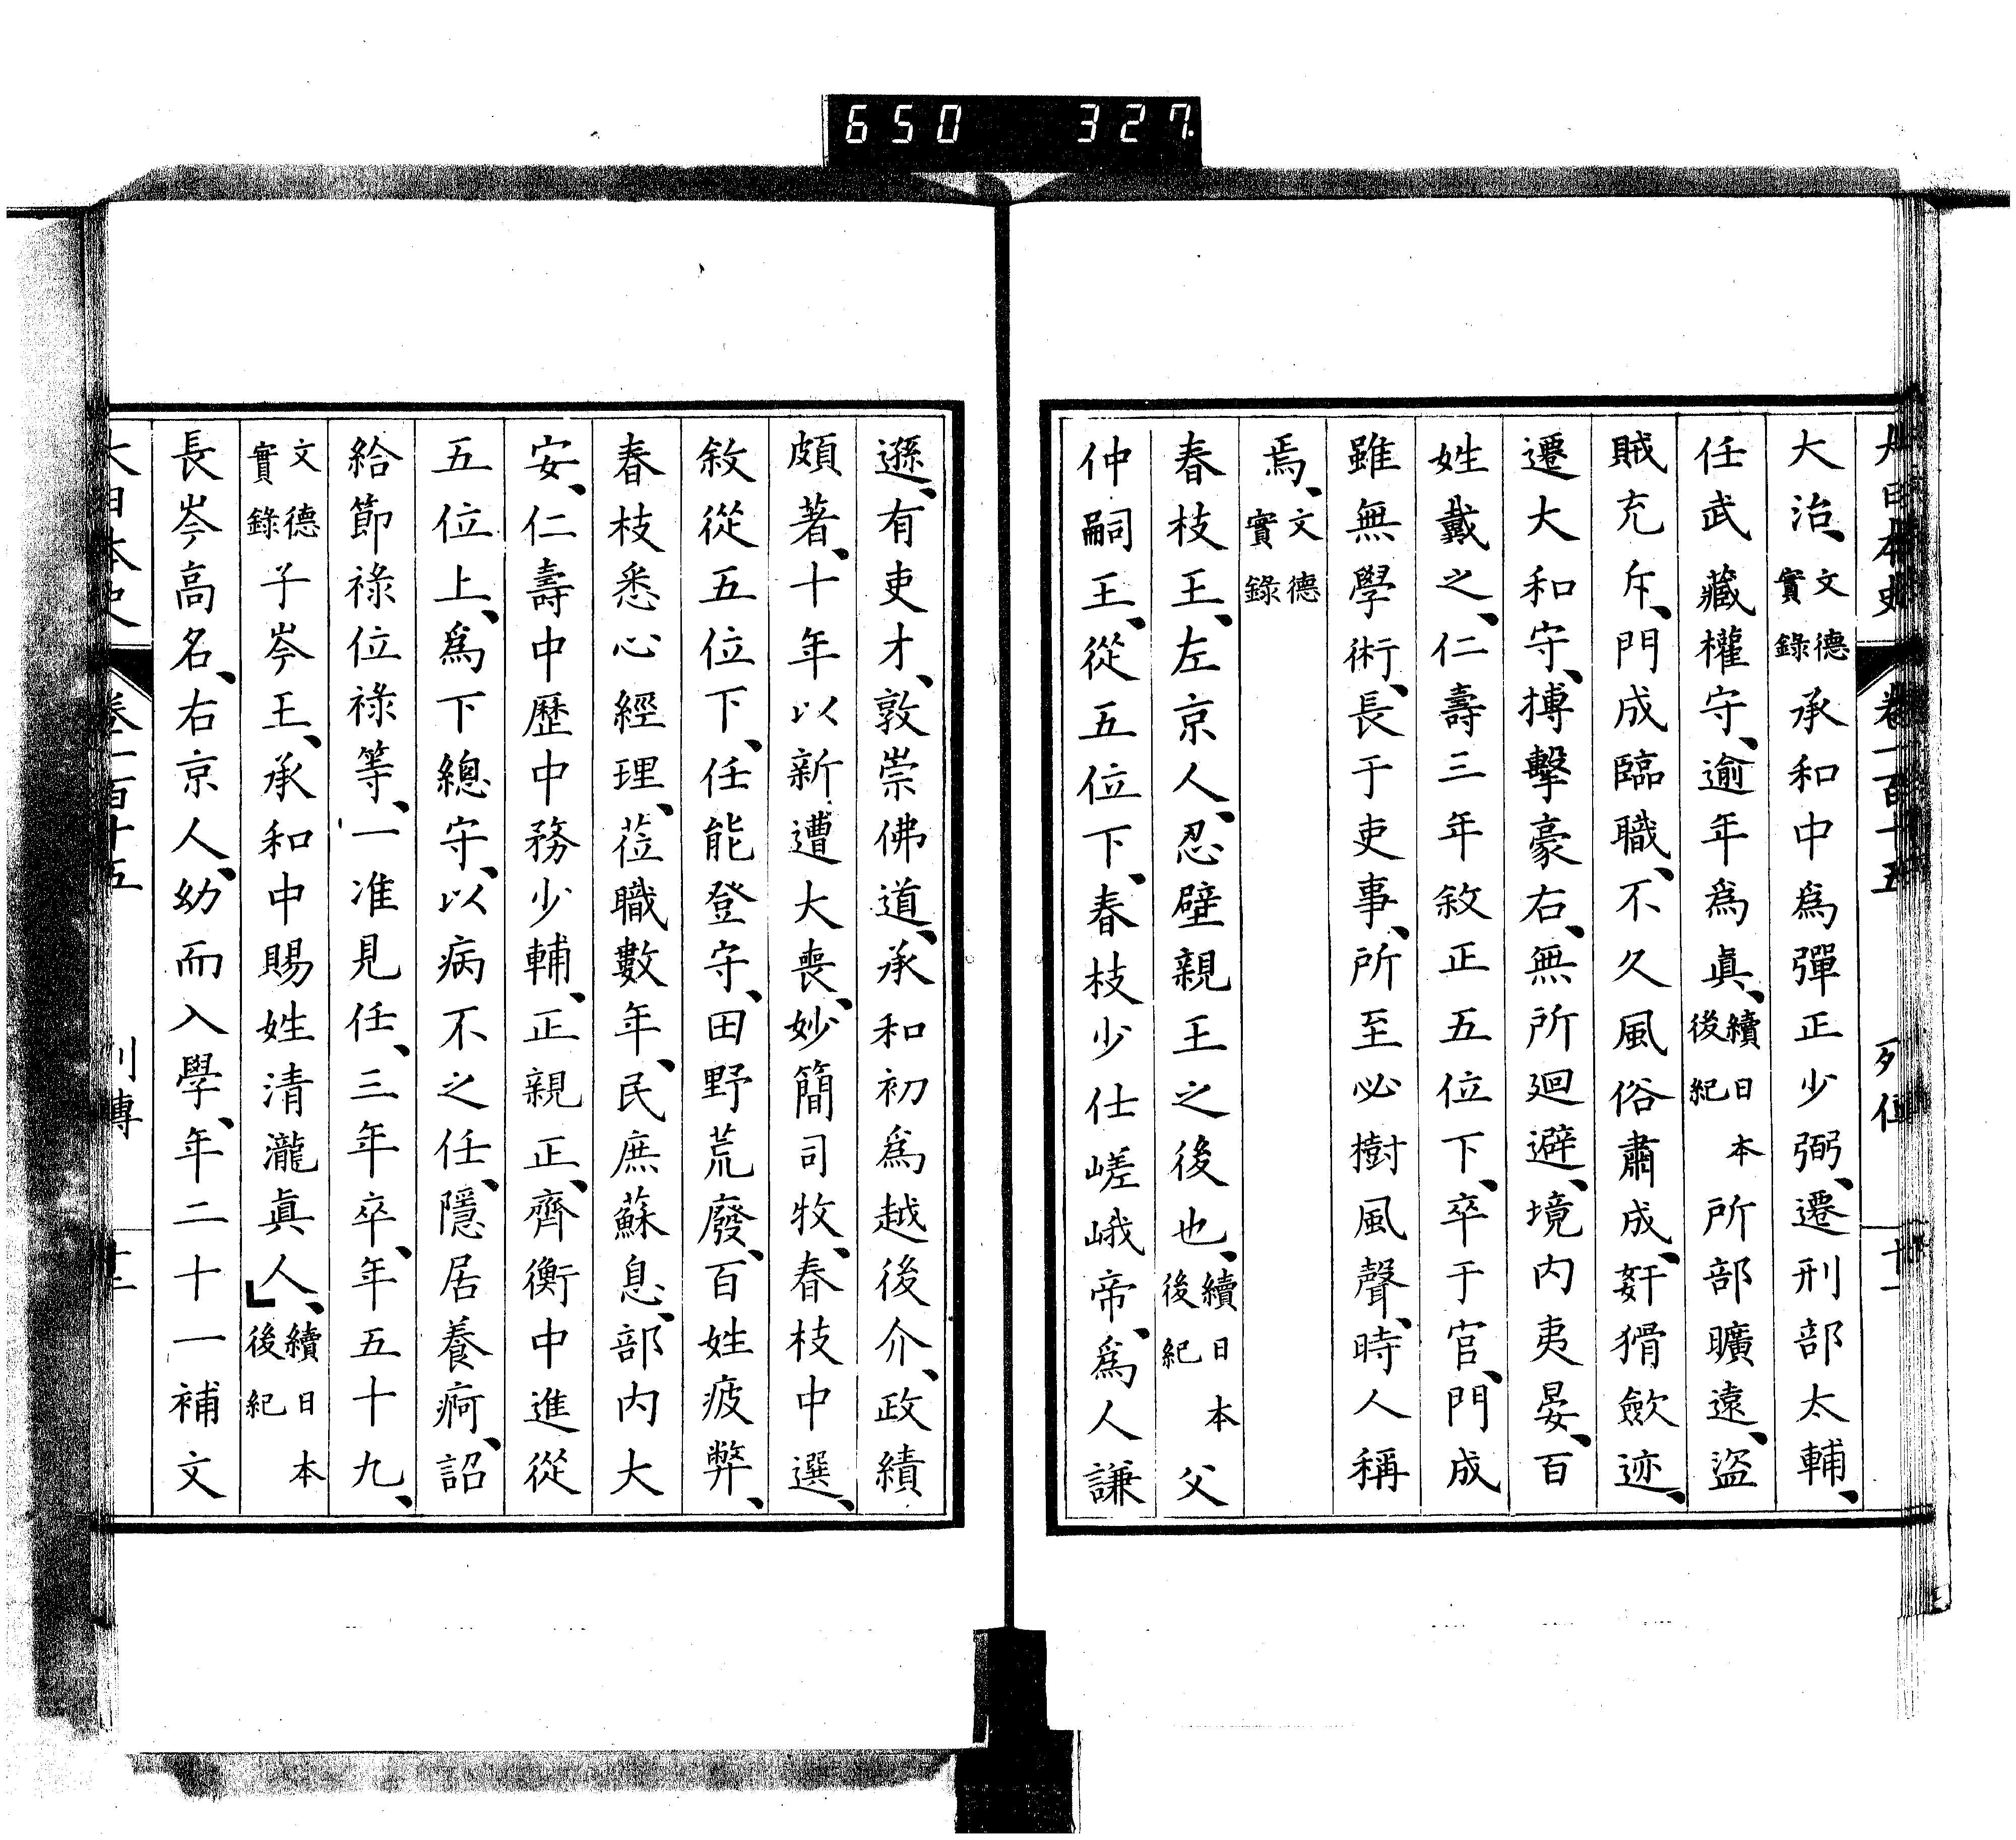 650 327.
大日本史 卷一百十五 列傳 十一
大治、文德實錄承和中爲彈正少弼、遷刑部太輔、
任武藏權守、逾年爲眞、續日本後紀所部曠遠、盜
賊充斥、門成臨職、不久風俗肅成、姧猾歛迹、
遷大和守、搏擊豪右、無所廻避、境内夷晏、百
姓戴之、仁壽三年敘正五位下、卒于官、門成
雖無學術、長于吏事、所至必樹風聲、時人稱
焉、文德實錄
春枝王、左京人、忍壁親王之後也、續日本後紀父
仲嗣王、從五位下、春枝少仕嵯峨帝、爲人謙
遜、有吏才、敦崇佛道、承和初爲越後介、政績
頗著、十年以新遭大喪、妙簡司牧、春枝中選、
敘從五位下、任能登守、田野荒廢、百姓疲弊、
春枝悉心經理、莅職數年、民庶蘇息、部内大
安、仁壽中歷中務少輔、正親正、齊衡中進從
五位上、爲下總守、以病不之任、隱居養痾、詔
給節祿位祿等、一准見任、三年卒、年五十九、
文德實錄子岑王、承和中賜姓清瀧眞人、續日本後紀
長岑高名、右京人、幼而入學、年二十一補文
大日本史 卷一百十五 列傳